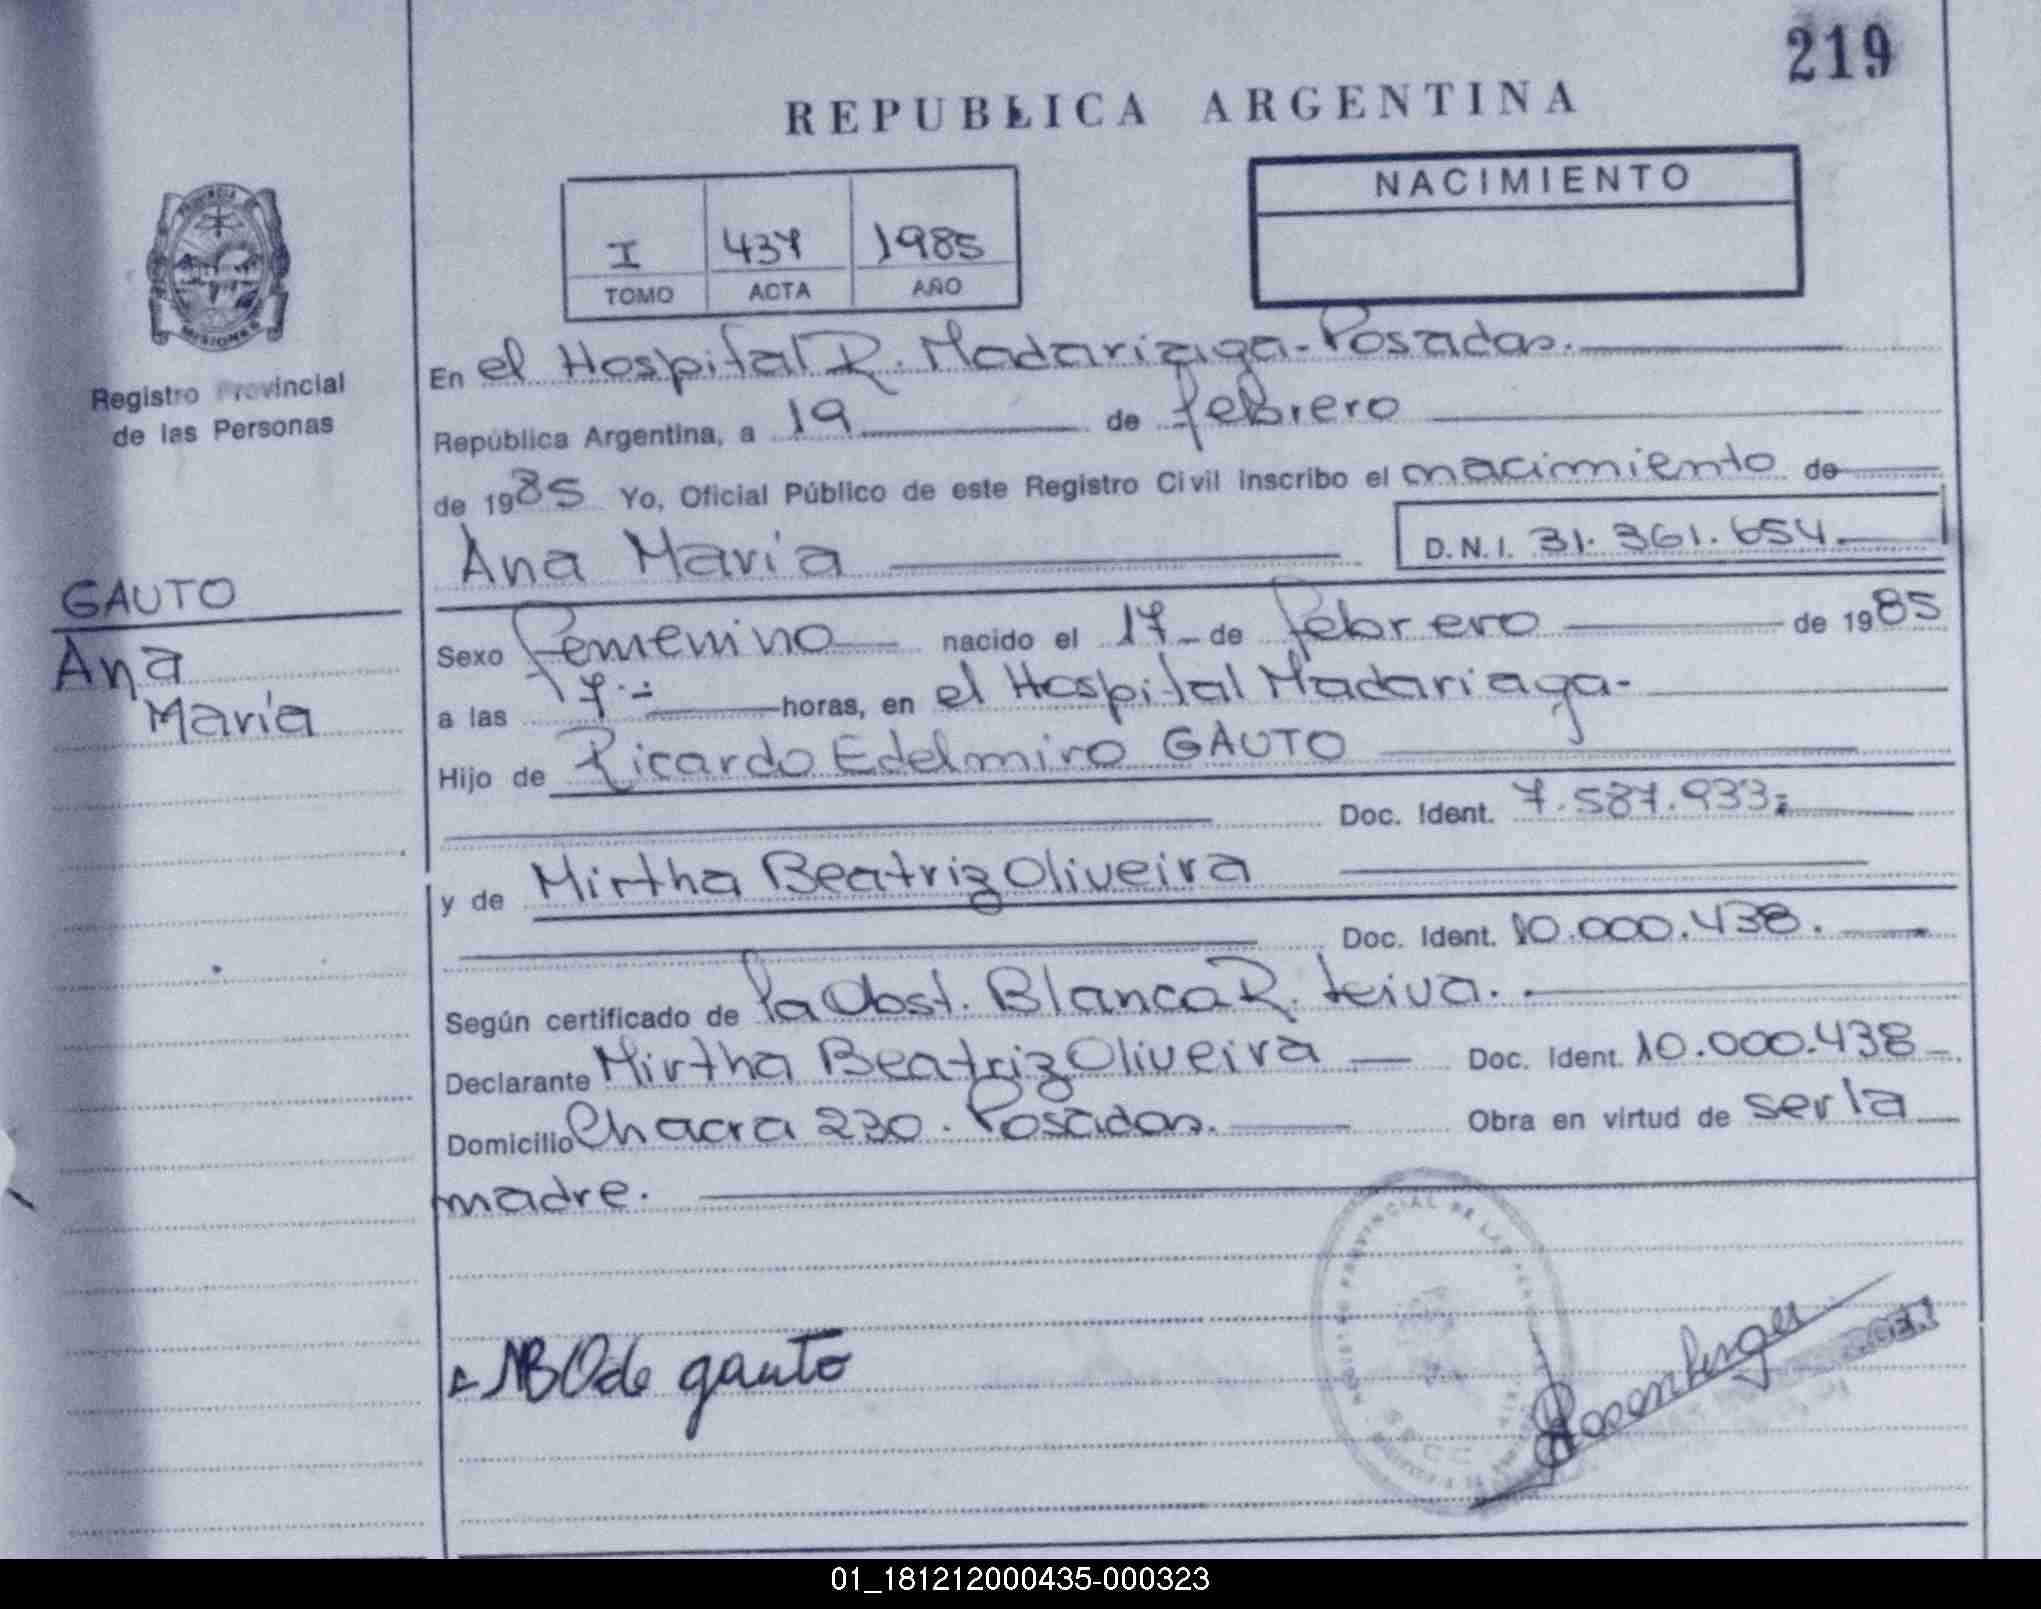 219
REPUBLICA ARGENTINA
NACIMIENTO
I 437 1985
TOMO ACTA AÑO
PROVINCIA DE
MISIONES
Registro Provincial
de las Personas
En el Hospital R. Madariaga - Posadas.
República Argentina, a 19 de febrero
de 1985 Yo, Oficial Público de este Registro Civil inscribo el nacimiento de
Ana María D.N.I. 31.361.654.
GAUTO
Ana
María
Sexo femenino nacido el 17 de febrero de 1985
a las 7.- horas, en el Hospital Madariaga.
Hijo de Ricardo Edelmiro GAUTO
Doc. Ident. 7.587.933.
y de Mirtha Beatriz Oliveira
Doc. Ident. 10.000.438.
Según certificado de la Obst. Blanca R. Leiva.
Declarante Mirtha Beatriz Oliveira Doc. Ident. 10.000.438
Domicilio Chacra 230. Posadas. Obra en virtud de ser la
madre.
REGISTRO PROVINCIAL DE LAS PERSONAS
MBO de gauto
Rosenberger
01_181212000435-000323